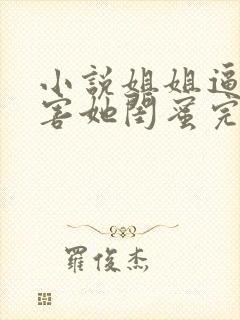 小說姐姐逼
害她閨蜜完
羅俊杰